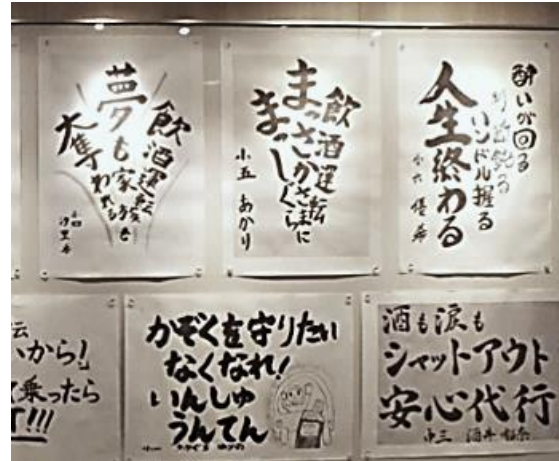 飲酒運転
夢も家族も
奪われる
飲酒運転
まっさかさまに
まっしぐら
小五 あかり
酔いが回る
判断鈍る
ハンドル握る
人生終わる
小六
いから!
乗ったら
!!!
かぞくを守りたい
なくなれ!
いんしゅ
うんてん
酒も涙も
シャットアウト
安心代行
中三 酒井